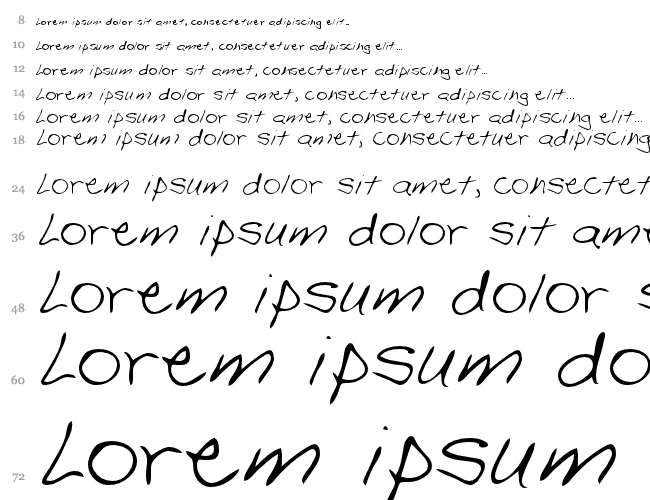 8 Lorem ipsum dolor sit amet, consectetuer adipiscing elit...
10 Lorem ipsum dolor sit amet, consectetuer adipiscing elit...
12 Lorem ipsum dolor sit amet, consectetuer adipiscing elit...
14 Lorem ipsum dolor sit amet, consectetuer adipiscing elit...
16 Lorem ipsum dolor sit amet, consectetuer adipiscing elit...
18 Lorem ipsum dolor sit amet, consectetuer adipiscing
24 Lorem ipsum dolor sit amet, consectet
36 Lorem ipsum dolor sit am
48 Lorem ipsum dolor s
60 Lorem ipsum do
72 Lorem ipsum